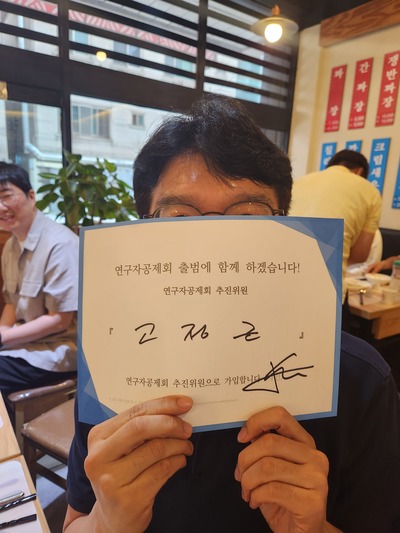 연구자공제회 출범에 함께 하겠습니다!
연구자공제회 추진위원
『 고정근 』
연구자공제회 추진위원으로 가입합니다.
짜장
간짜장
쟁반짜장